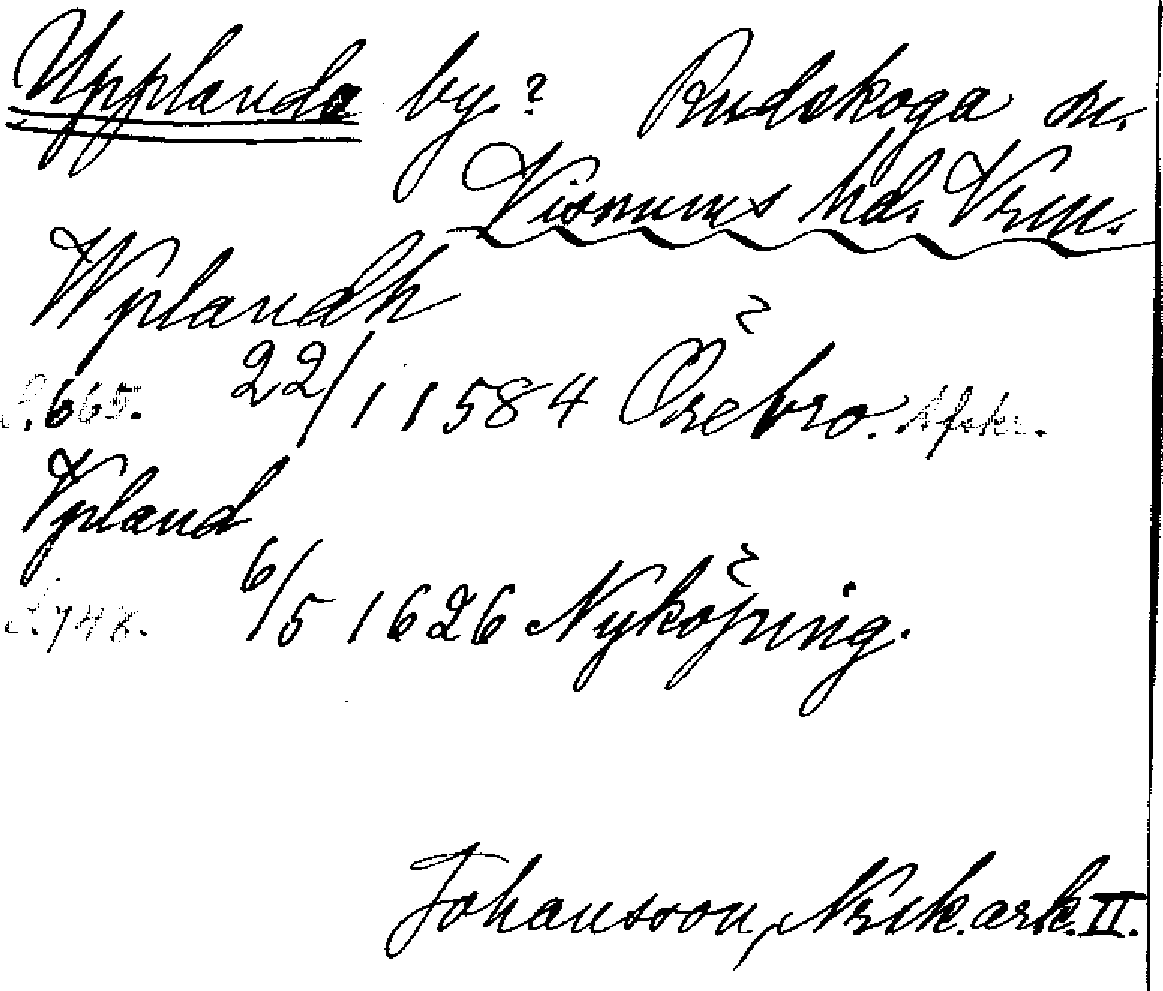 Upplanda by? Rudskoga sn.
Visnums hd. Vrm.
Wplandh
S. 665. 22/1 1584 Örebro. Afskr.
Vpland
S. 748. 6/5 1626 Nyköping.
Johansson, Nrik. ark. II.